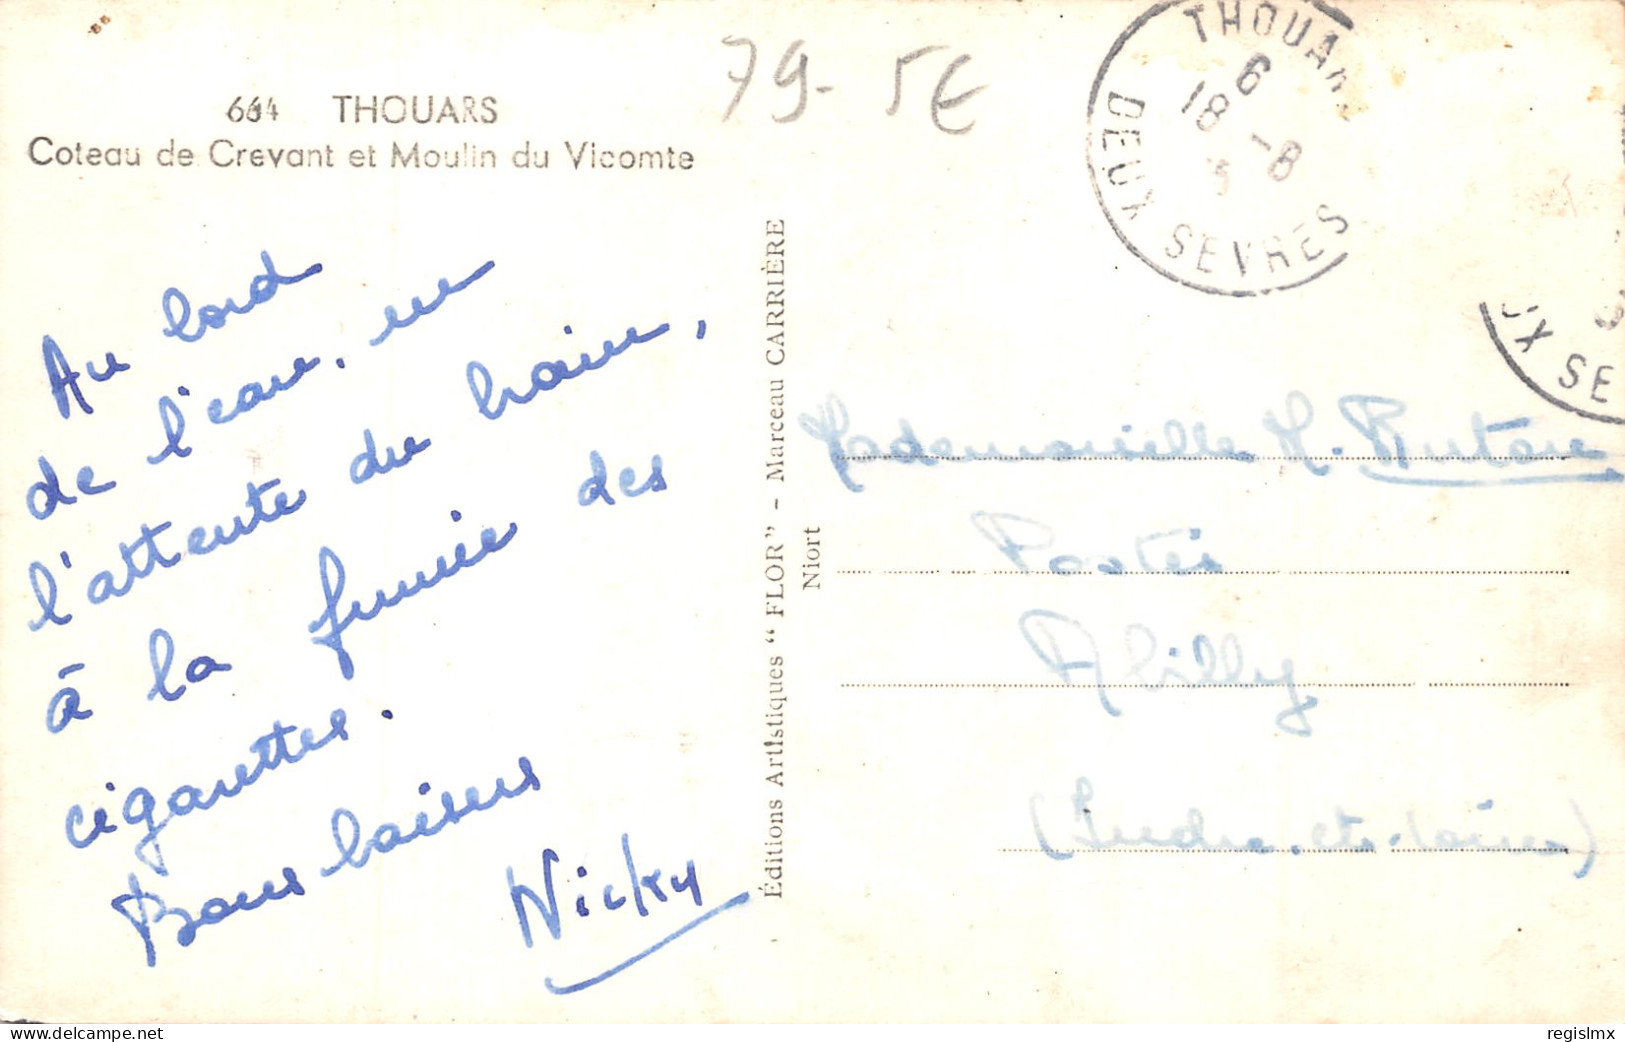 664 THOUARS
Coteau de Crevant et Moulin du Vicomte
79- 5€
THOUARS
6
18 -8
DEUX SEVRES
UX SE
Au bord
de l'eau, en
l'attente du train,
à la fumée des
cigarettes.
Bons baisers
Nicky
Éditions Artistiques “ FLOR” - Marceau CARRIÈRE
Niort
Mademoiselle M.
Postes
Abilly
(Indre-et-Loire)
regislmx